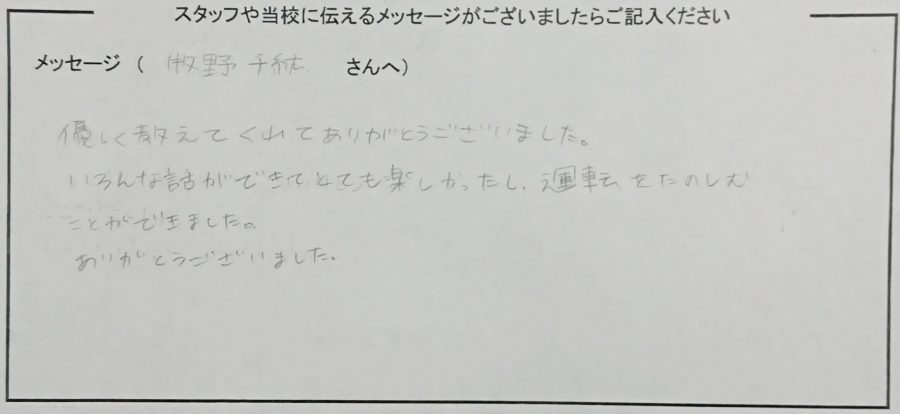 スタッフや当校に伝えるメッセージがございましたらご記入ください
メッセージ ( 牧野 千紘 さんへ)
優しく教えてくれてありがとうございました。
いろんな話ができてとても楽しかったし、運転をたのしむ
ことができました。
ありがとうございました。